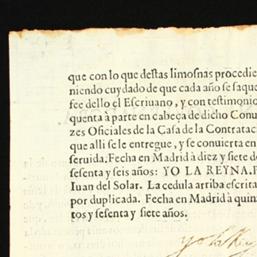 que con lo que destas limosnas procedie
niendo cuydado de que cada año se saque
fee dello el Escriuano, y con testimonio
quenta à parte en cabeça de dicho Conu
zes Oficiales de la Casa de la Contratac
que alli se le entregue, y se conuierta en
seruida. Fecha en Madrid à diez y siete d
sesenta y seis años: YO LA REYNA. P
Iuan del Solar. La cedula arriba escrita
por duplicada. Fecha en Madrid à quin
tos y sesenta y siete años.
yo la Rey